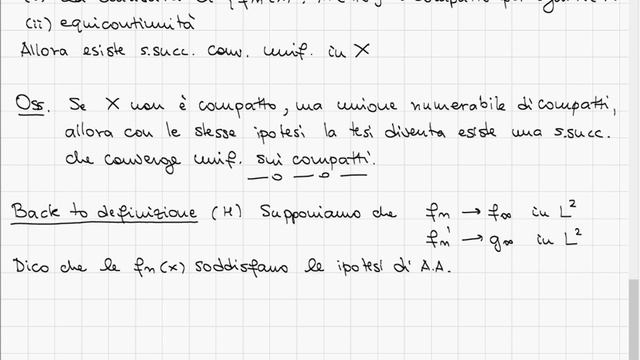 (ii) equicontinuità
Allora esiste s.succ. conv. unif. in X
Oss. Se X non è compatto, ma unione numerabile di compatti,
allora con le stesse ipotesi la tesi diventa esiste una s.succ.
che converge unif. sui compatti.
Back to definizione (H) Supponiamo che fn → f∞ in L²
fn' → g∞ in L²
Dico che le fn(x) soddisfano le ipotesi di A.A.